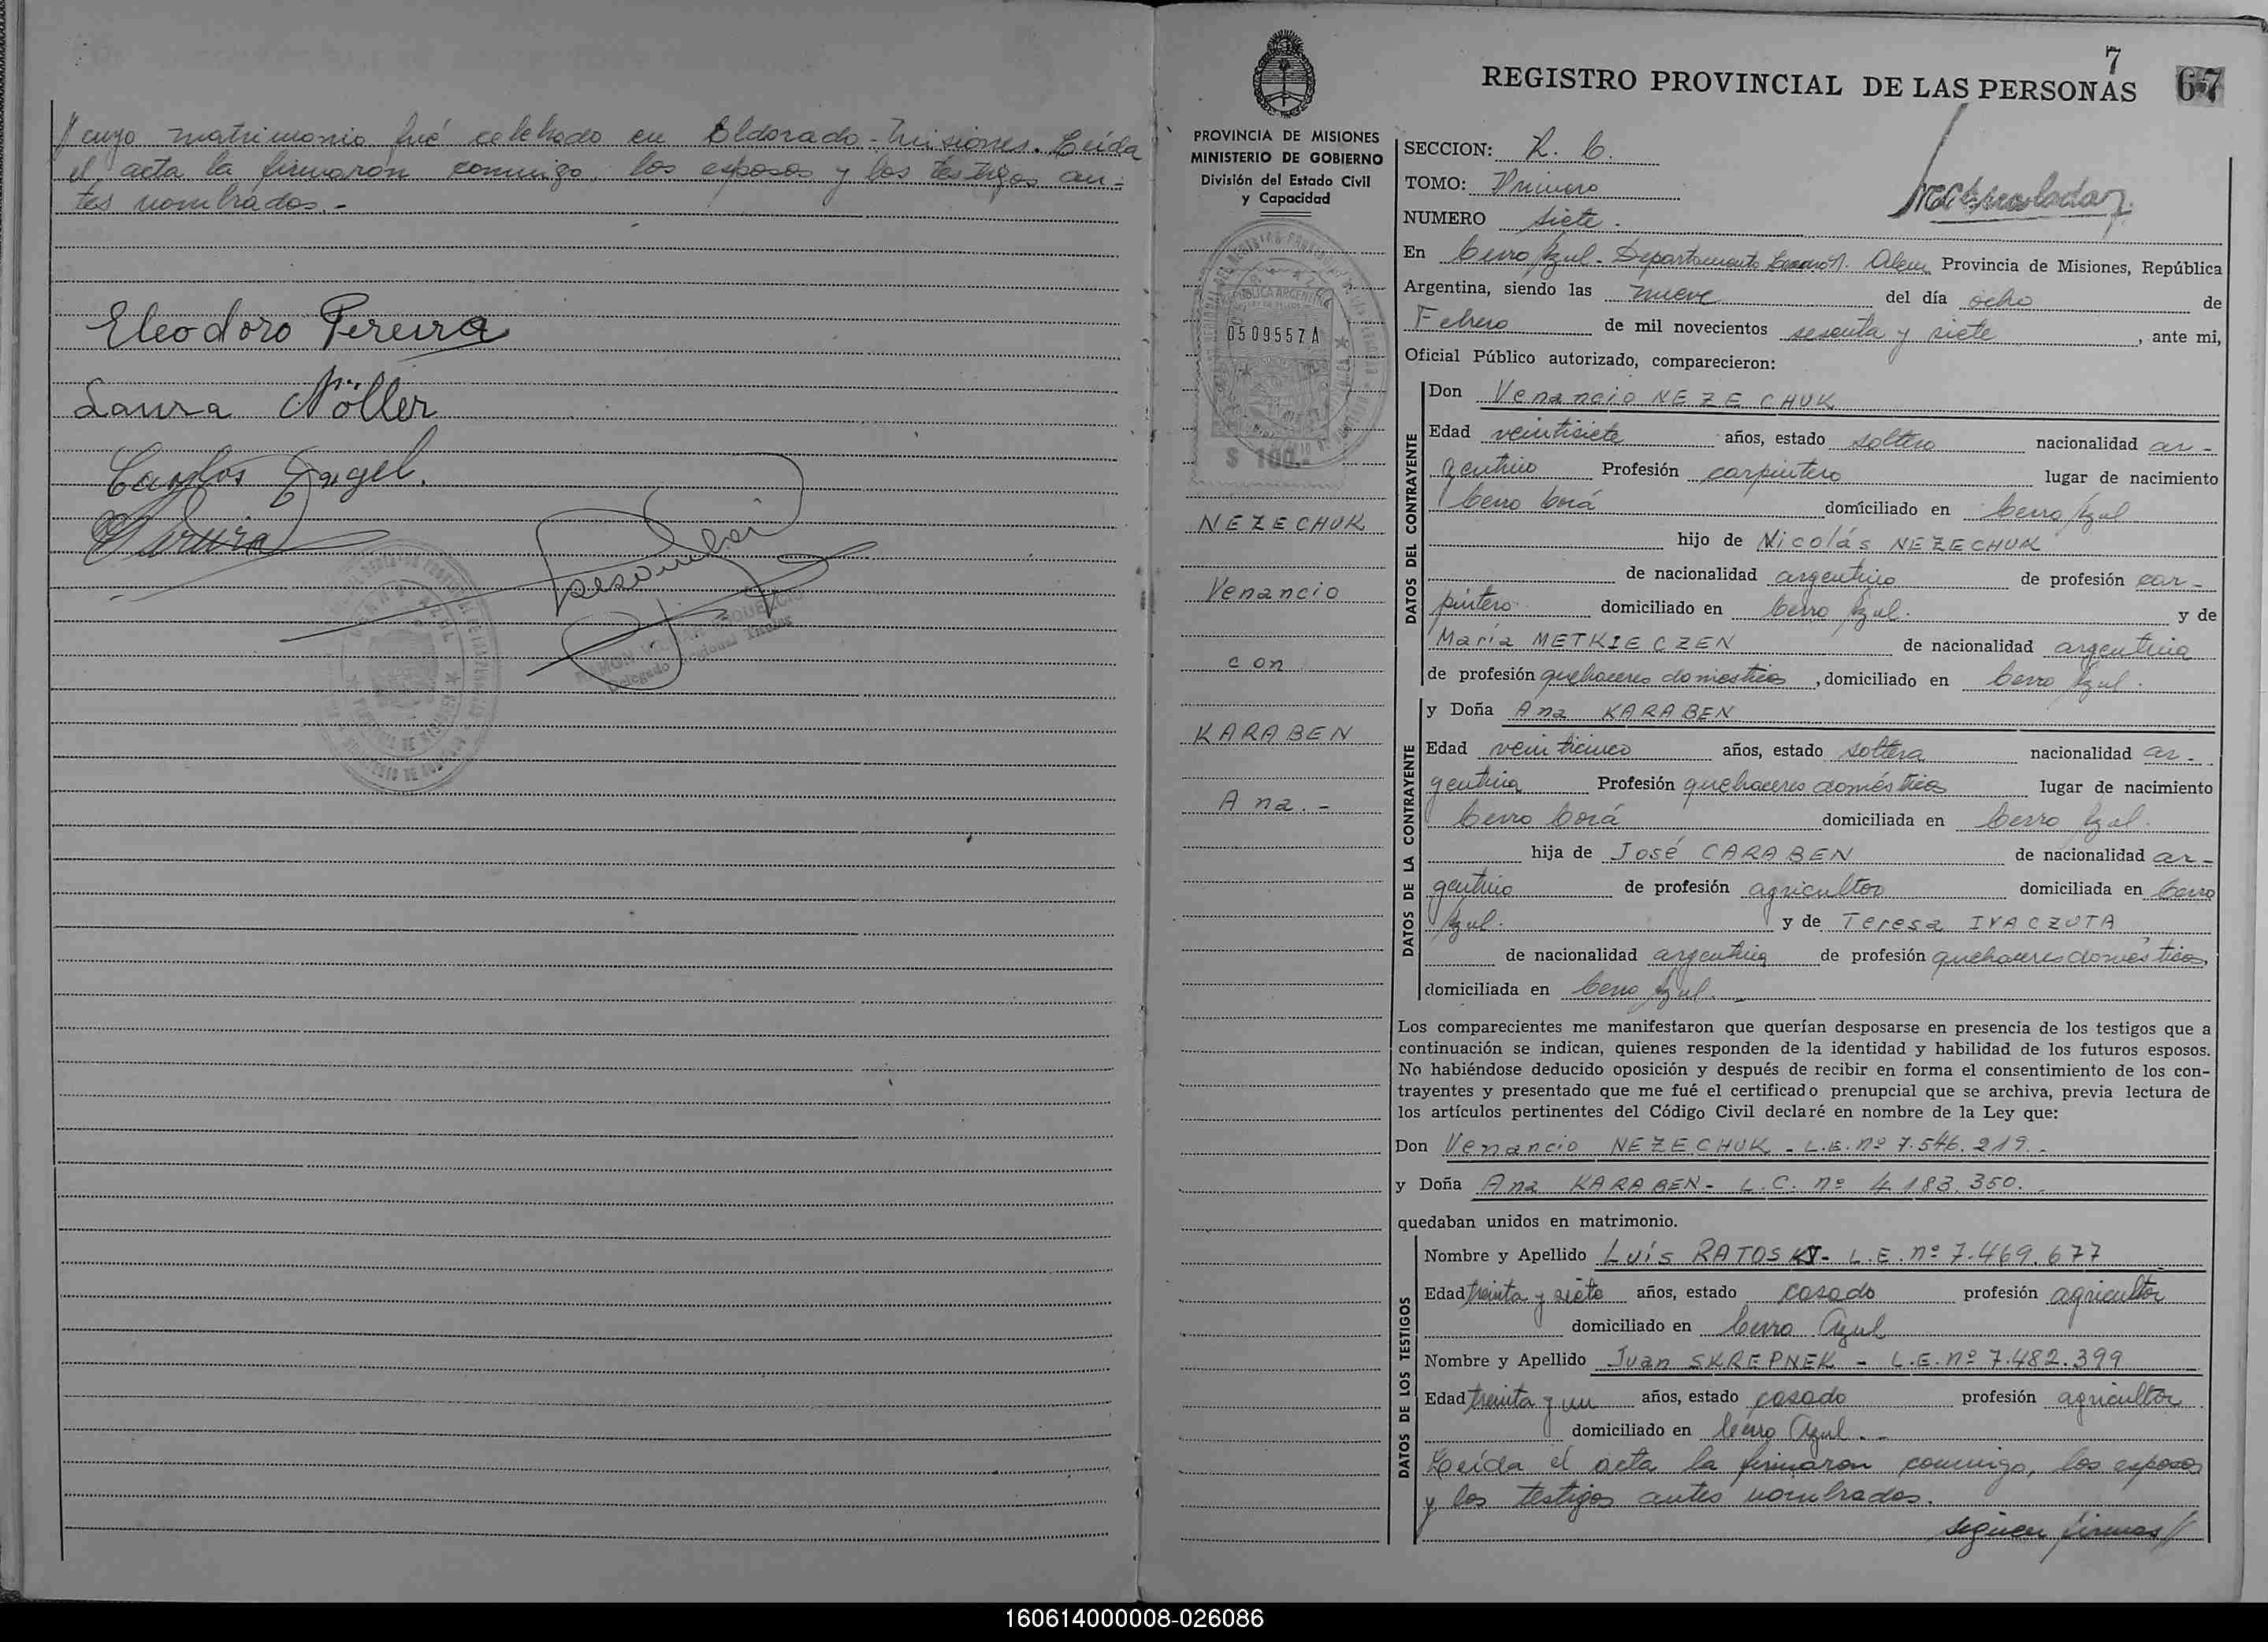 // cuyo matrimonio fué celebrado en Eldorado - Misiones. Leída
el acta la firmaron conmigo, los esposos y los testigos an=
tes nombrados.-
Eleodoro Pereira
Laura Nöller
Carlos Engel.
7
REGISTRO PROVINCIAL DE LAS PERSONAS 67
PROVINCIA DE MISIONES
MINISTERIO DE GOBIERNO
División del Estado Civil
y Capacidad
0509557 A
$ 100.-
NEZECHUK
Venancio
con
KARABEN
Ana.-
SECCION: R. C.
TOMO: Primero
NUMERO siete.
En Cerro Azul - Departamento Leandro N. Alem Provincia de Misiones, República
Argentina, siendo las nueve del día ocho de
Febrero de mil novecientos sesenta y siete, ante mi,
Oficial Público autorizado, comparecieron:
DATOS DEL CONTRAYENTE
Don Venancio NEZECHUK
Edad veintisiete años, estado soltero nacionalidad ar-
gentino Profesión carpintero lugar de nacimiento
Cerro Corá domiciliado en Cerro Azul
hijo de Nicolás NEZECHUK
de nacionalidad argentino de profesión car-
pintero domiciliado en Cerro Azul. y de
María METKIECZEN de nacionalidad argentina
de profesión quehaceres domésticos, domiciliado en Cerro Azul.
DATOS DE LA CONTRAYENTE
y Doña Ana KARABEN
Edad veinticinco años, estado soltera nacionalidad ar-
gentina Profesión quehaceres domésticos lugar de nacimiento
Cerro Corá domiciliada en Cerro Azul.
hija de José CARABEN de nacionalidad ar-
gentino de profesión agricultor domiciliada en Cerro
Azul. y de Teresa IVACZUTA
de nacionalidad argentina de profesión quehaceres domésticos,
domiciliada en Cerro Azul.-
Los comparecientes me manifestaron que querían desposarse en presencia de los testigos que a
continuación se indican, quienes responden de la identidad y habilidad de los futuros esposos.
No habiéndose deducido oposición y después de recibir en forma el consentimiento de los con-
trayentes y presentado que me fué el certificado prenupcial que se archiva, previa lectura de
los artículos pertinentes del Código Civil declaré en nombre de la Ley que:
Don Venancio NEZECHUK - L.E. nº 7.546.219.-
y Doña Ana KARABEN - L.C. nº 4.183.350.-
quedaban unidos en matrimonio.
DATOS DE LOS TESTIGOS
Nombre y Apellido Luís RATOSKY - L.E. nº 7.469.677
Edad treinta y siete años, estado casado profesión agricultor
domiciliado en Cerro Azul
Nombre y Apellido Juan SKREPNEK - L.E. nº 7.482.399
Edad treinta y un años, estado casado profesión agricultor
domiciliado en Cerro Azul.-
Leída el acta la firmaron conmigo, los esposos
y los testigos antes nombrados.
siguen firmas //
160614000008-026086